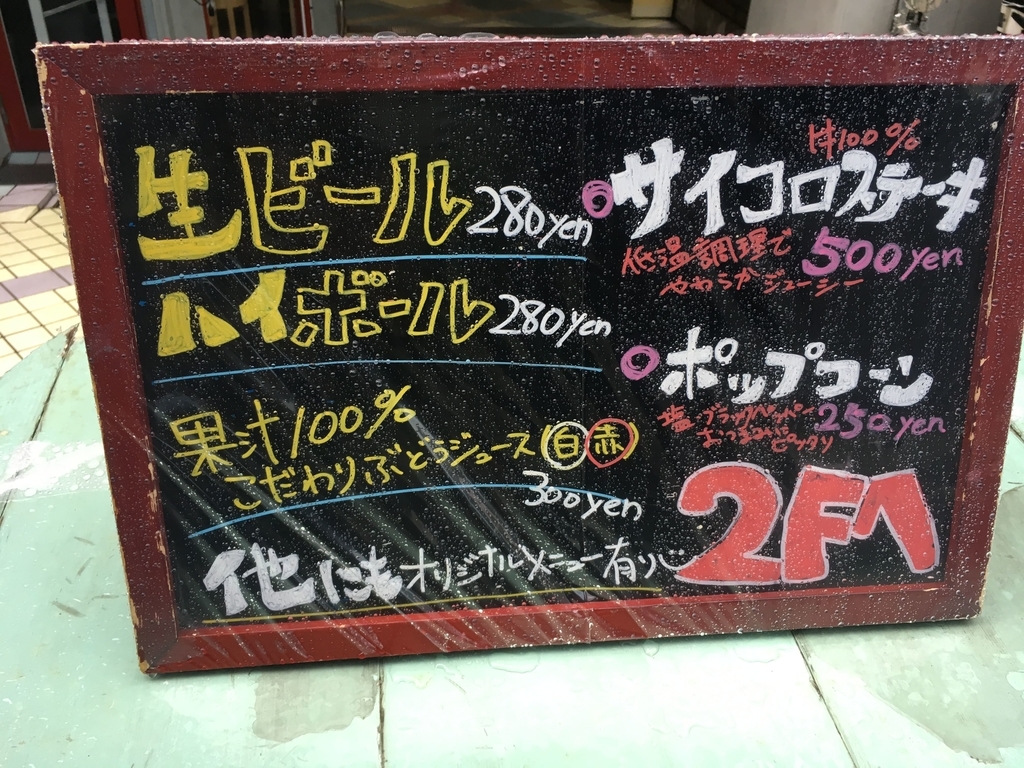 生ビール 280yen
ハイボール 280yen
果汁100%
こだわりぶどうジュース(白赤)
300yen
他にもオリジナルメニュー有り
牛100%
サイコロステーキ
低温調理で
やわらかジューシー
500yen
ポップコーン
塩・ブラックペッパー
おつまみにピッタリ
250yen
2Fへ